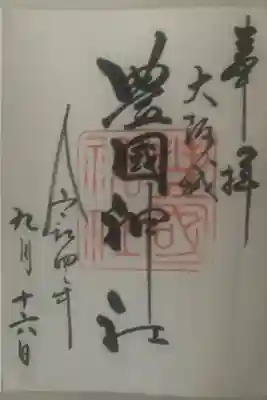 奉拝
大阪城
豊國神社
令和四年
九月十六日